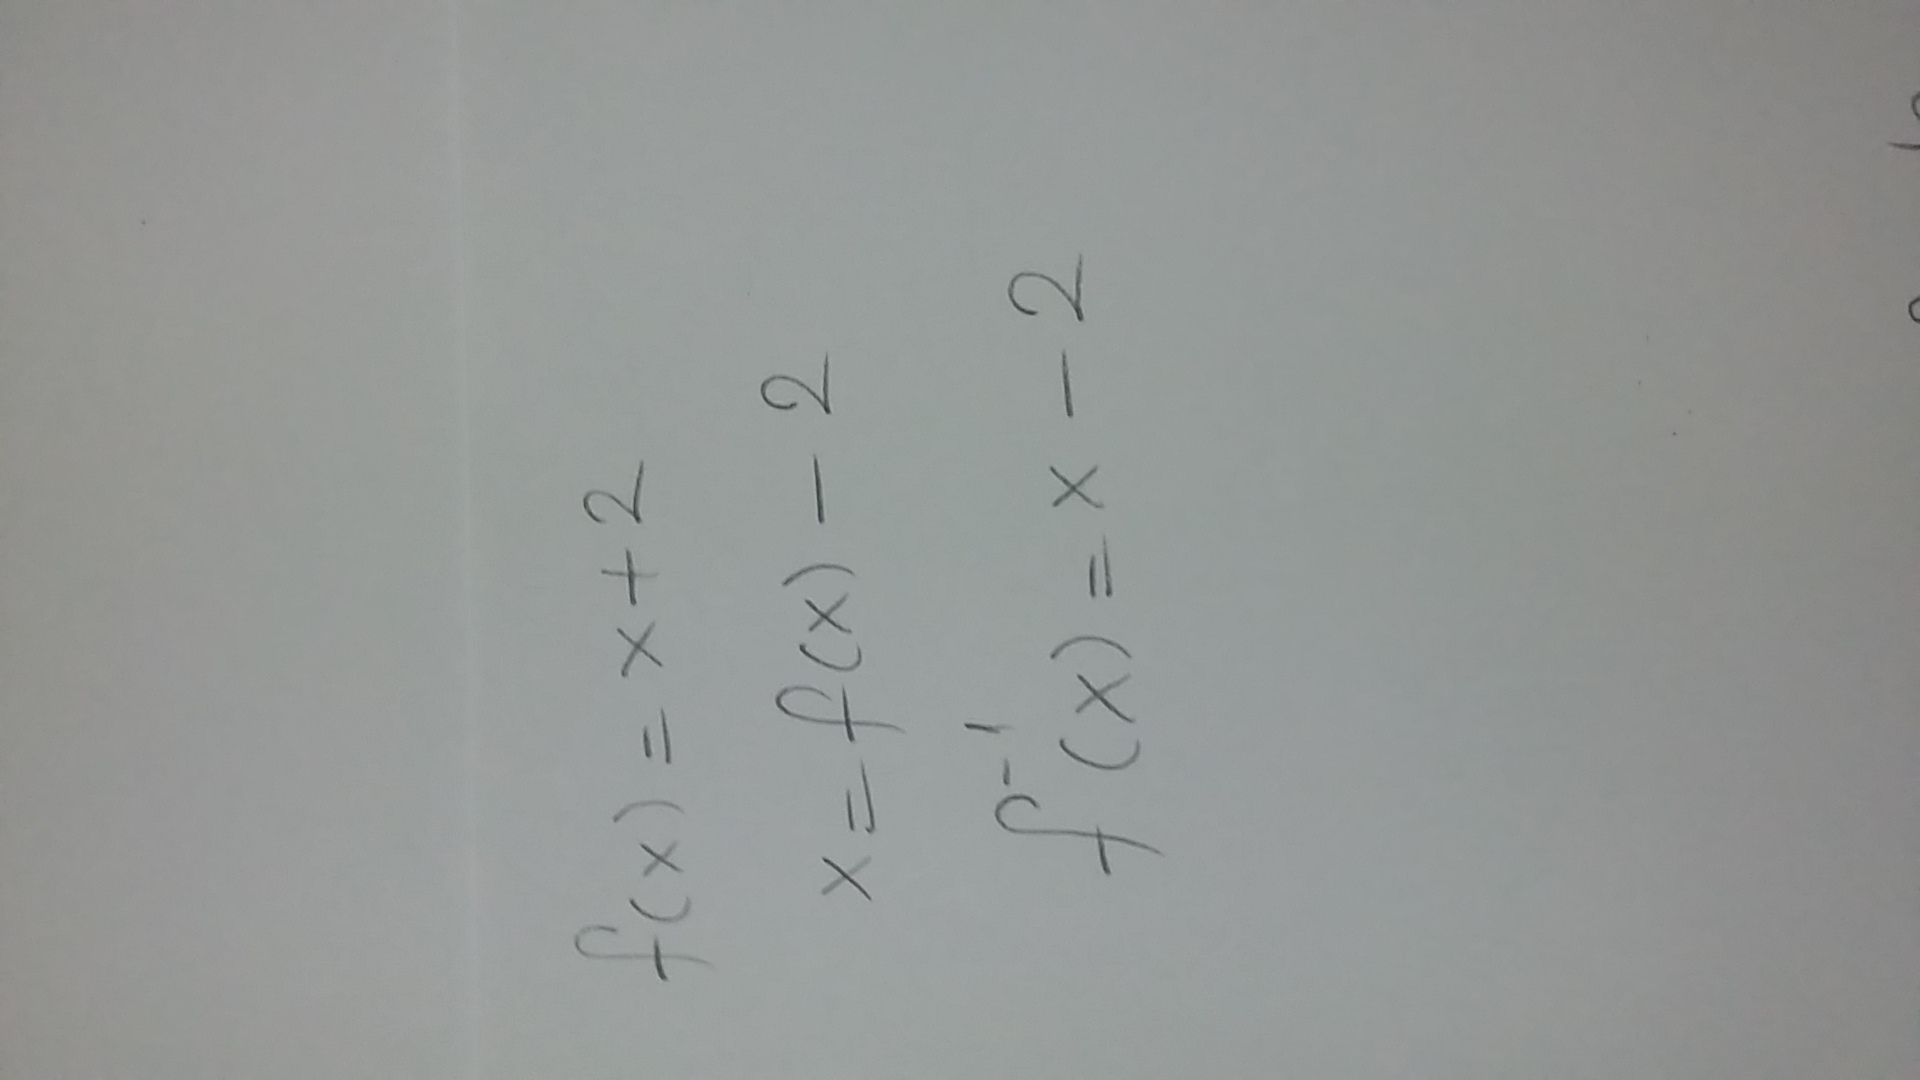 f(x) = x + 2
x = f(x) - 2
f⁻¹(x) = x - 2